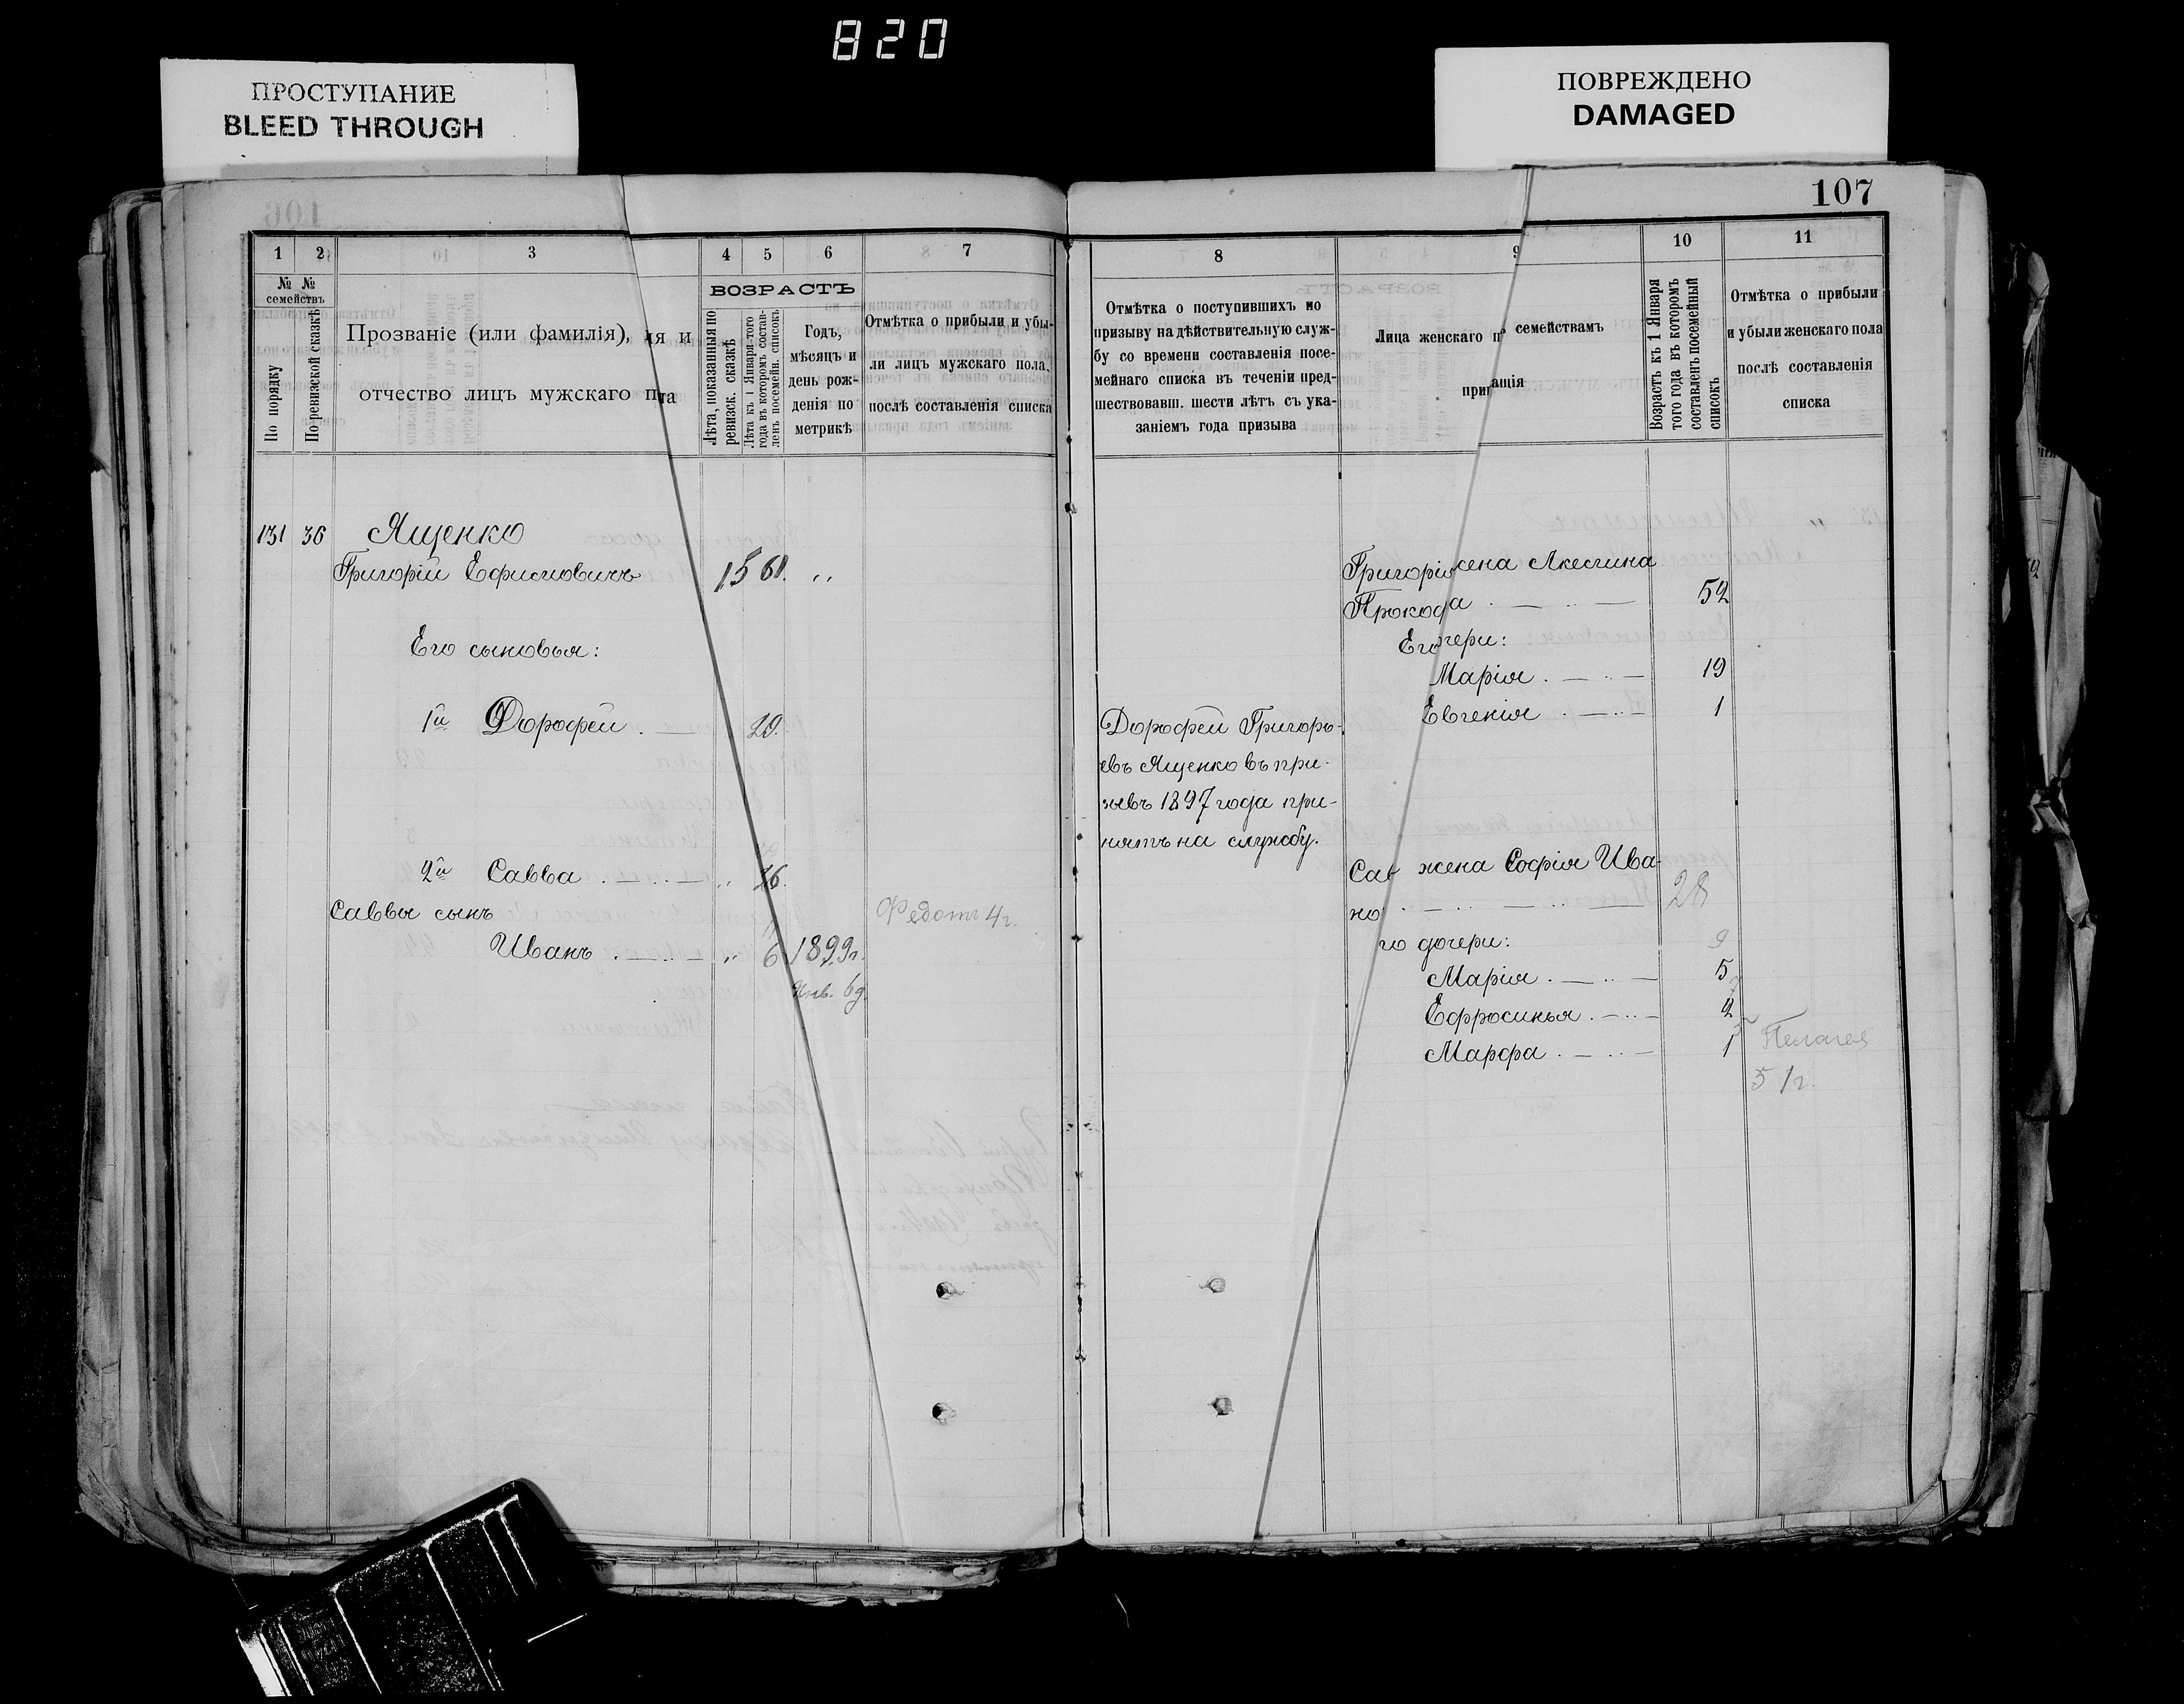 820
ПРОСТУПАНИЕ
BLEED THROUGH
ПОВРЕЖДЕНО
DAMAGED
107
1 2 3 4 5 6 7
№ № семействъ
По порядку
По ревизской сказкѣ
Прозваніе (или фамилія), мя и
отчество лицъ мужскаго п ла
ВОЗРАСТЪ
Лѣта, показанныя по ревизск. сказкѣ
Лѣта къ 1 Января того года въ которомъ составленъ посемейн. списокъ
Годъ,
мѣсяцъ и
день рож-
денія по
метрикѣ
Отмѣтка о прибыли и убы-
ли лицъ мужскаго пола,
послѣ составленія списка
8 9 10 11
Отмѣтка о поступившихъ по
призыву на дѣйствительную служ-
бу со времени составленія посе-
мейнаго списка въ теченіи пред-
шествовавш. шести лѣтъ съ ука-
заніемъ года призыва
Лица женскаго п семействамъ
при ащія
Возрастъ къ 1 Января
того года въ которомъ
составленъ посемейный
списокъ
Отмѣтка о прибыли
и убыли женскаго пола
послѣ составленія
списка
131 36 Ященко
Григорій 15 61 "
Его сыновья:
1й Дорофей 29.
2й Савва " 26.
Саввы сынъ Федотъ 4 г.
Иванъ " 6 1899 г.
Янв. 6 д.
Дорофей Григорь-
евъ Ященко въ при-
зывъ 1897 года при-
нятъ на службу.
Григорія жена Акелина
Прокоф а 52
Его чери:
Марія 19
Евгенія 1
Сав жена Софія Ива-
но 28
го дочери: 9
Марія 5
Ефросинья 2
Марфа 1 Пелагея
5 1 г.